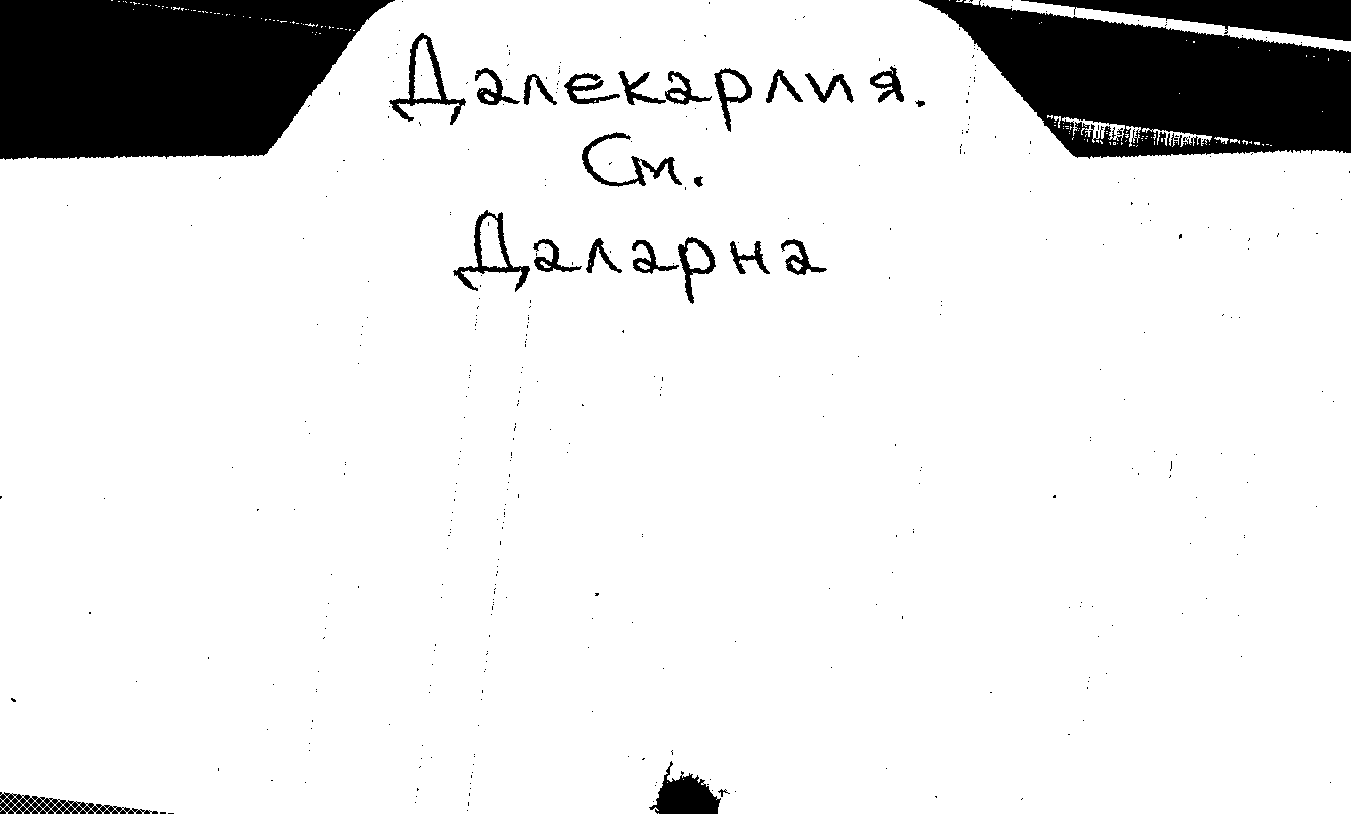 Далекарлия.
См.
Даларна